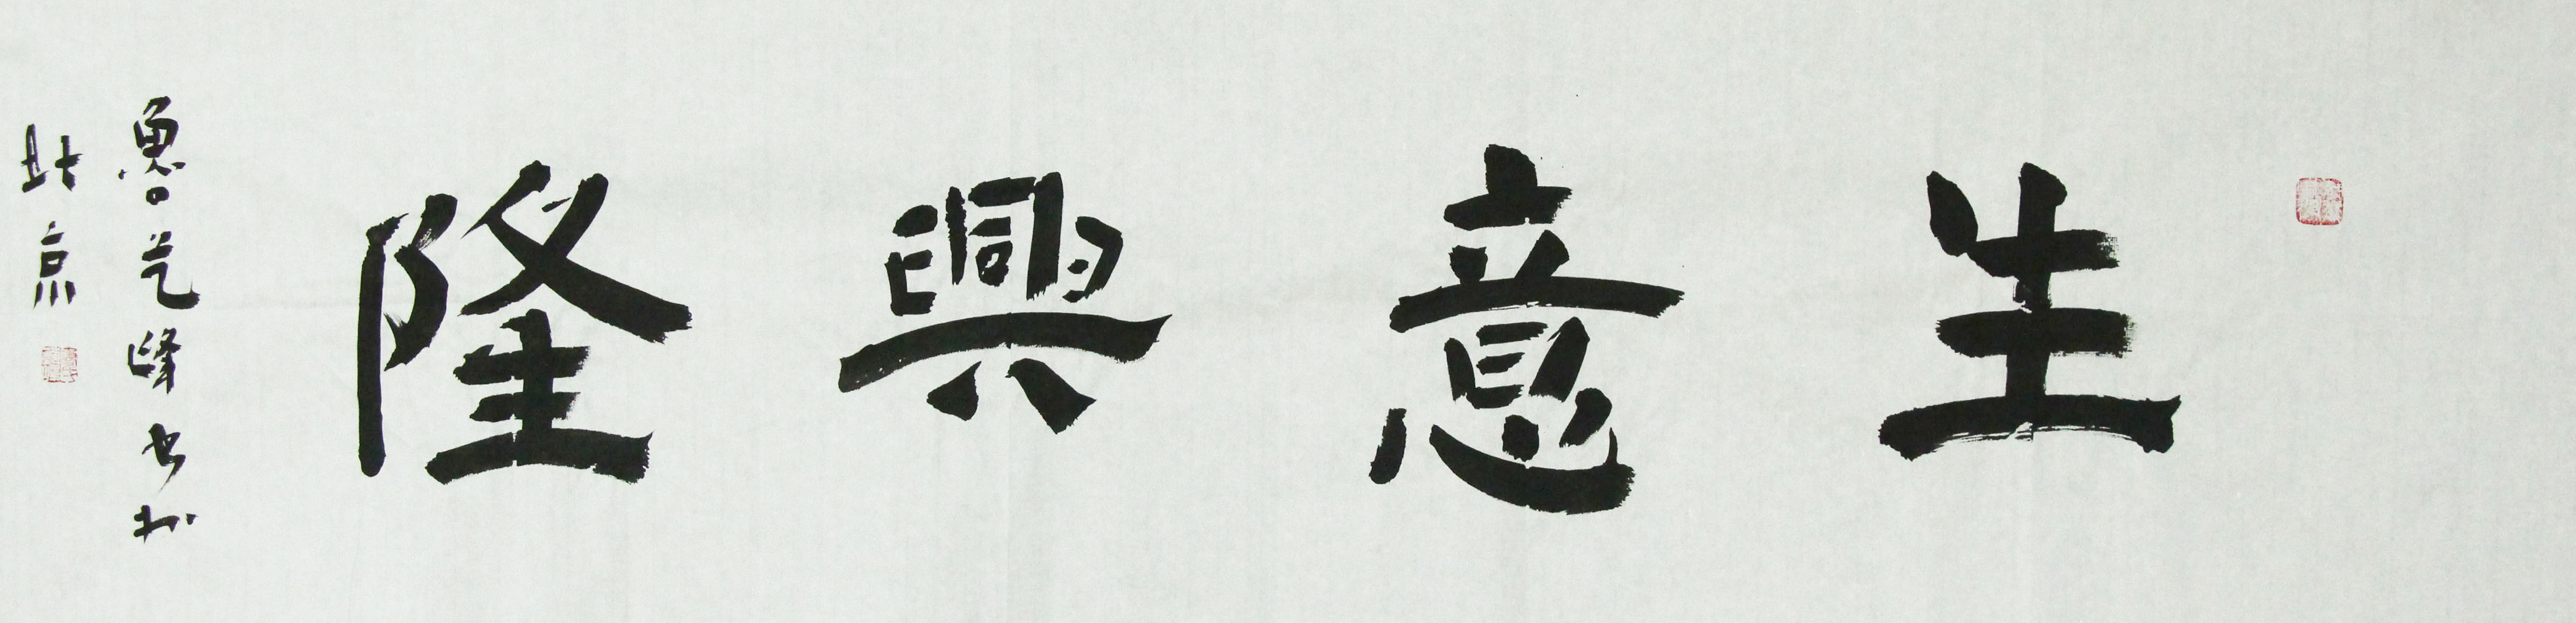 生意興隆
魯艺峰书於
北京